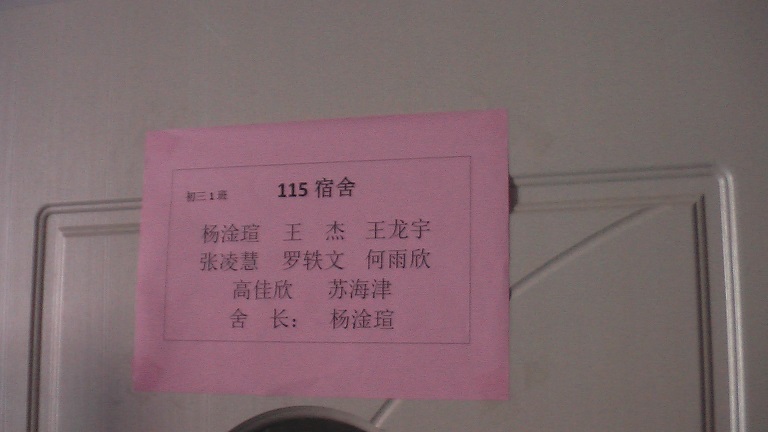 初三1班 115宿舍
杨淦瑄 王 杰 王龙宇
张凌慧 罗轶文 何雨欣
高佳欣 苏海津
舍 长： 杨淦瑄